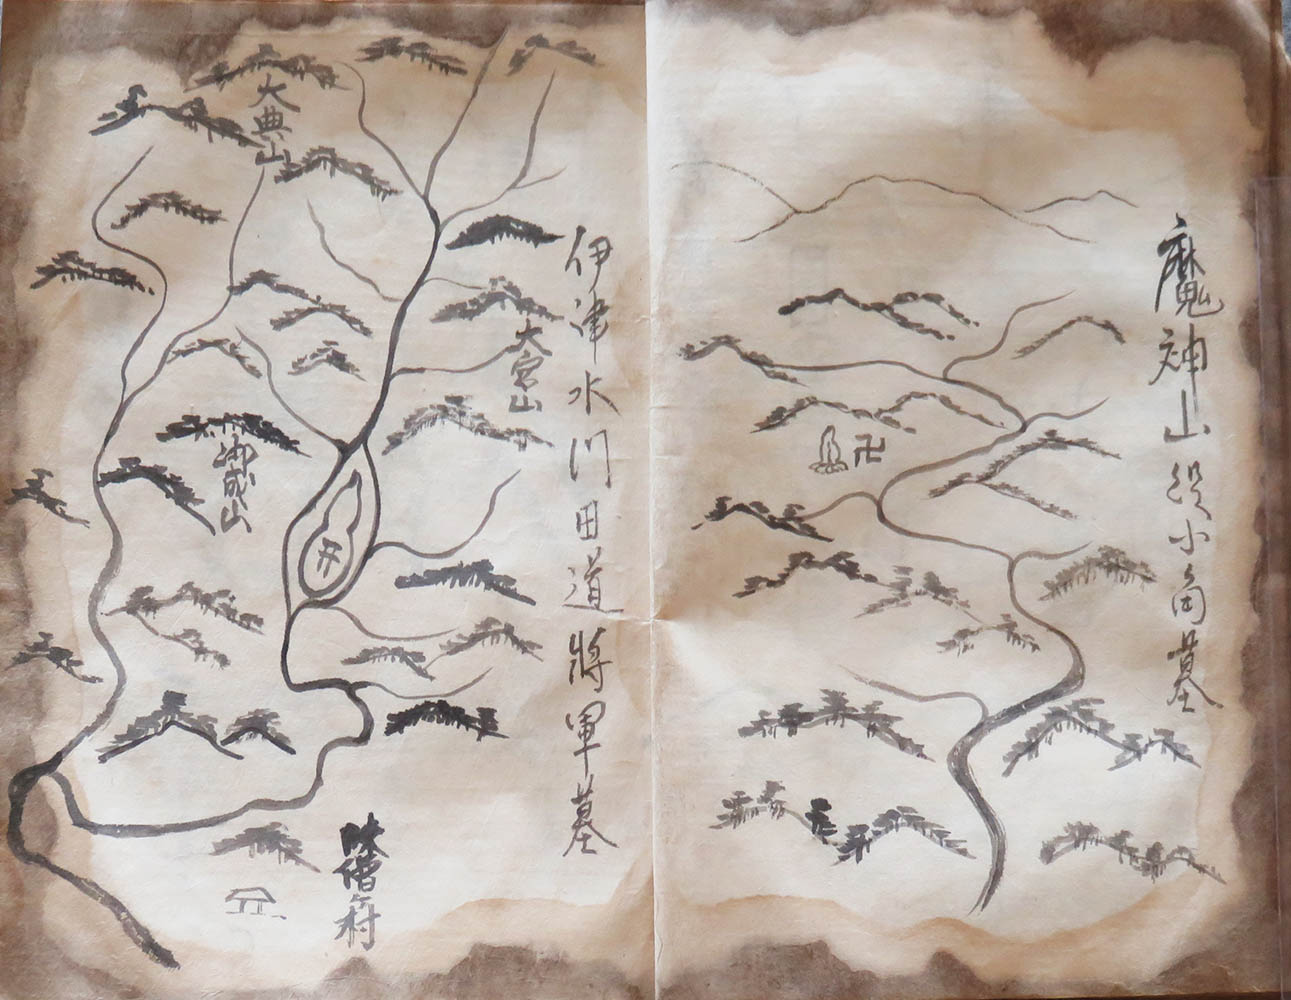 魔神山役小角墓
卍
伊津水川田道將軍墓
大宮山
开
大典山
御成山
味僧村